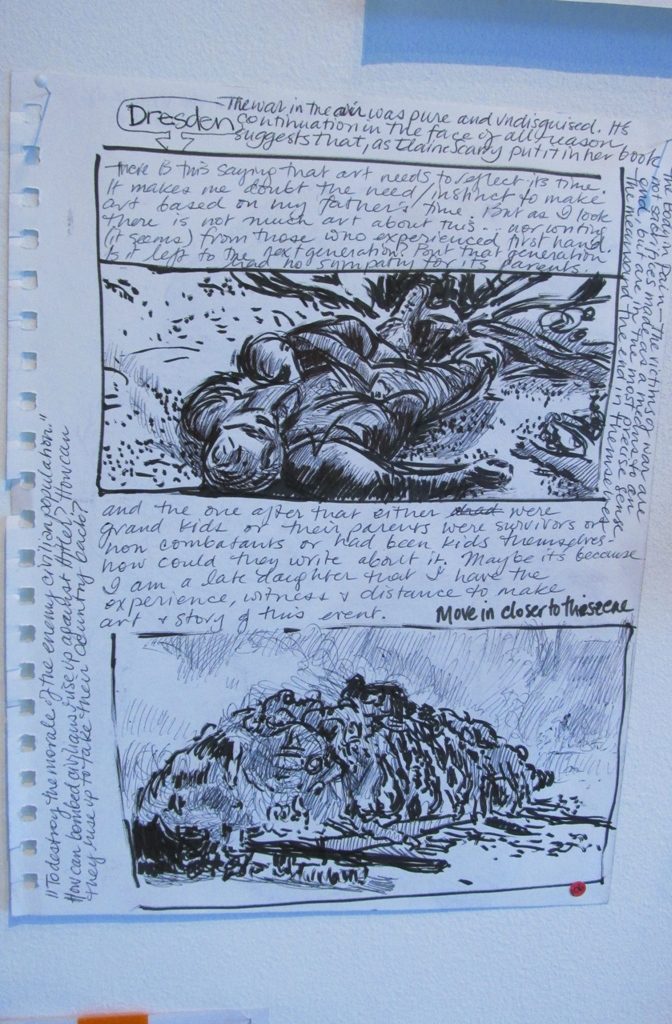 Dresden
The war in the air was pure and undisguised. Its
continuation in the face of all reason
suggests that, as Elaine Scarry put it in her book
no sacrifices made as a means to an
end, but are in the most precise sense
the means and the end in themselves.
There is this saying that art needs to reflect its time.
It makes me doubt the need/instinct to make
art based on my father's time. But as I look
there is not much art about this... nor writing
(it seems) from those who experienced first hand.
Is it left to the next generation? But that generation
had no sympathy for its parents..
and the one after that either were
grand kids or their parents were survivors or
non combatants or had been kids themselves.
how could they write about it. Maybe its because
I am a late daughter that I have the
experience, witness & distance to make
art & story of this event.
Move in closer to this scene
"To destroy the morale of the enemy civilian population."
How can bombed out civilians rise up against Hitler? How can
they rise up to take their country back?